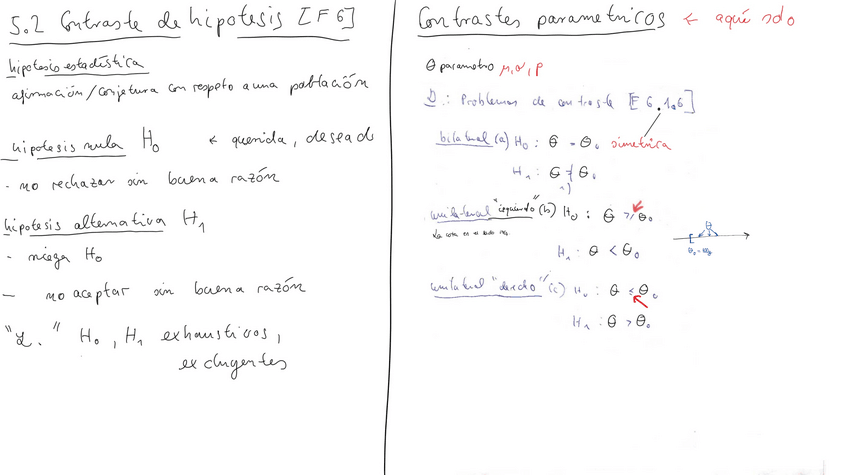 5.2 Contraste de hipotesis [F 6]
hipotesis estadística
afirmación/conjetura con respeto a una población
hipotesis nula H₀ ← querida, desead
- no rechazar sin buena razón
hipotesis alternativa H₁
- niega H₀
- no aceptar sin buena razón
" L. " H₀, H₁ exhaustivos,
excluyentes
Contrastes parametricos ← aquí solo
θ parametro μ, σ, p
D.: Problemas de contraste [F 6.1.6]
bilateral (a) H₀ : θ = θ₀ simetrica
H₁ : θ ≠ θ₀
unilateral "izquierdo" (b) H₀ : θ ≥ θ₀
H₁ : θ < θ₀
θ
unilateral "derecho" (c) H₀ : θ ≤ θ₀
H₁ : θ > θ₀